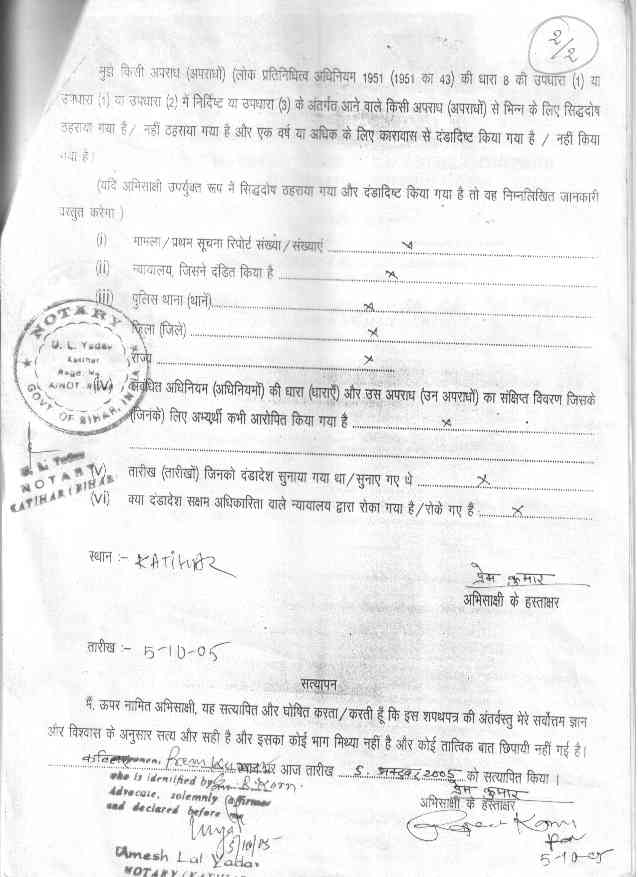 2/2
मुझे किसी अपराध (अपराधों) (लोक प्रतिनिधित्व अधिनियम 1951 (1951 का 43) की धारा 8 की उपधारा (1) या
उपधारा (1) या उपधारा (2) में निर्दिष्ट या उपधारा (3) के अंतर्गत आने वाले किसी अपराध (अपराधों) से भिन्न के लिए सिद्धदोष
ठहराया गया है / नहीं ठहराया गया है और एक वर्ष या अधिक के लिए कारावास से दंडादिष्ट किया गया है / नही किया
गया है।
(यदि अभिसाक्षी उपर्युक्त रूप में सिद्धदोष ठहराया गया और दंडादिष्ट किया गया है तो वह निम्नलिखित जानकारी
प्रस्तुत करेगा )
(i) मामला/प्रथम सूचना रिपोर्ट संख्या/संख्याएं x
(ii) न्यायालय, जिसने दंडित किया है x
(iii) पुलिस थाना (थानें) x
जिला (जिले) x
राज्य x
(iv) संबंधित अधिनियम (अधिनियमों) की धारा (धाराएँ) और उस अपराध (उन अपराधों) का संक्षिप्त विवरण जिसके
(जिनके) लिए अभ्यर्थी कभी आरोपित किया गया है x
(v) तारीख (तारीखों) जिनको दंडादेश सुनाया गया था/सुनाए गए थे x
(vi) क्या दंडादेश सक्षम अधिकारिता वाले न्यायालय द्वारा रोका गया है/रोके गए हैं x
NOTARY
U. L. Yadav
Katihar
Regd. No.
GOVT. OF BIHAR, INDIA
U. L. Yadav
NOTARY
KATIHAR (BIHAR)
स्थान :- KATIHAR
प्रेम कुमार
अभिसाक्षी के हस्ताक्षर
तारीख :- 5-10-05
सत्यापन
मैं, ऊपर नामित अभिसाक्षी, यह सत्यापित और घोषित करता/करती हूँ कि इस शपथपत्र की अंतर्वस्तु मेरे सर्वोत्तम ज्ञान
और विश्वास के अनुसार सत्य और सही है और इसका कोई भाग मिथ्या नहीं है और कोई तात्विक बात छिपायी नहीं गई है।
Prem Kumar पर आज तारीख 5. अक्टूबर 2005 को सत्यापित किया ।
who is identified by
Advocate, solemnly affirmed
and declared before me
प्रेम कुमार
अभिसाक्षी के हस्ताक्षर
5/10/05
Umesh Lal Yadav
NOTARY (KATIHAR
5-10-05